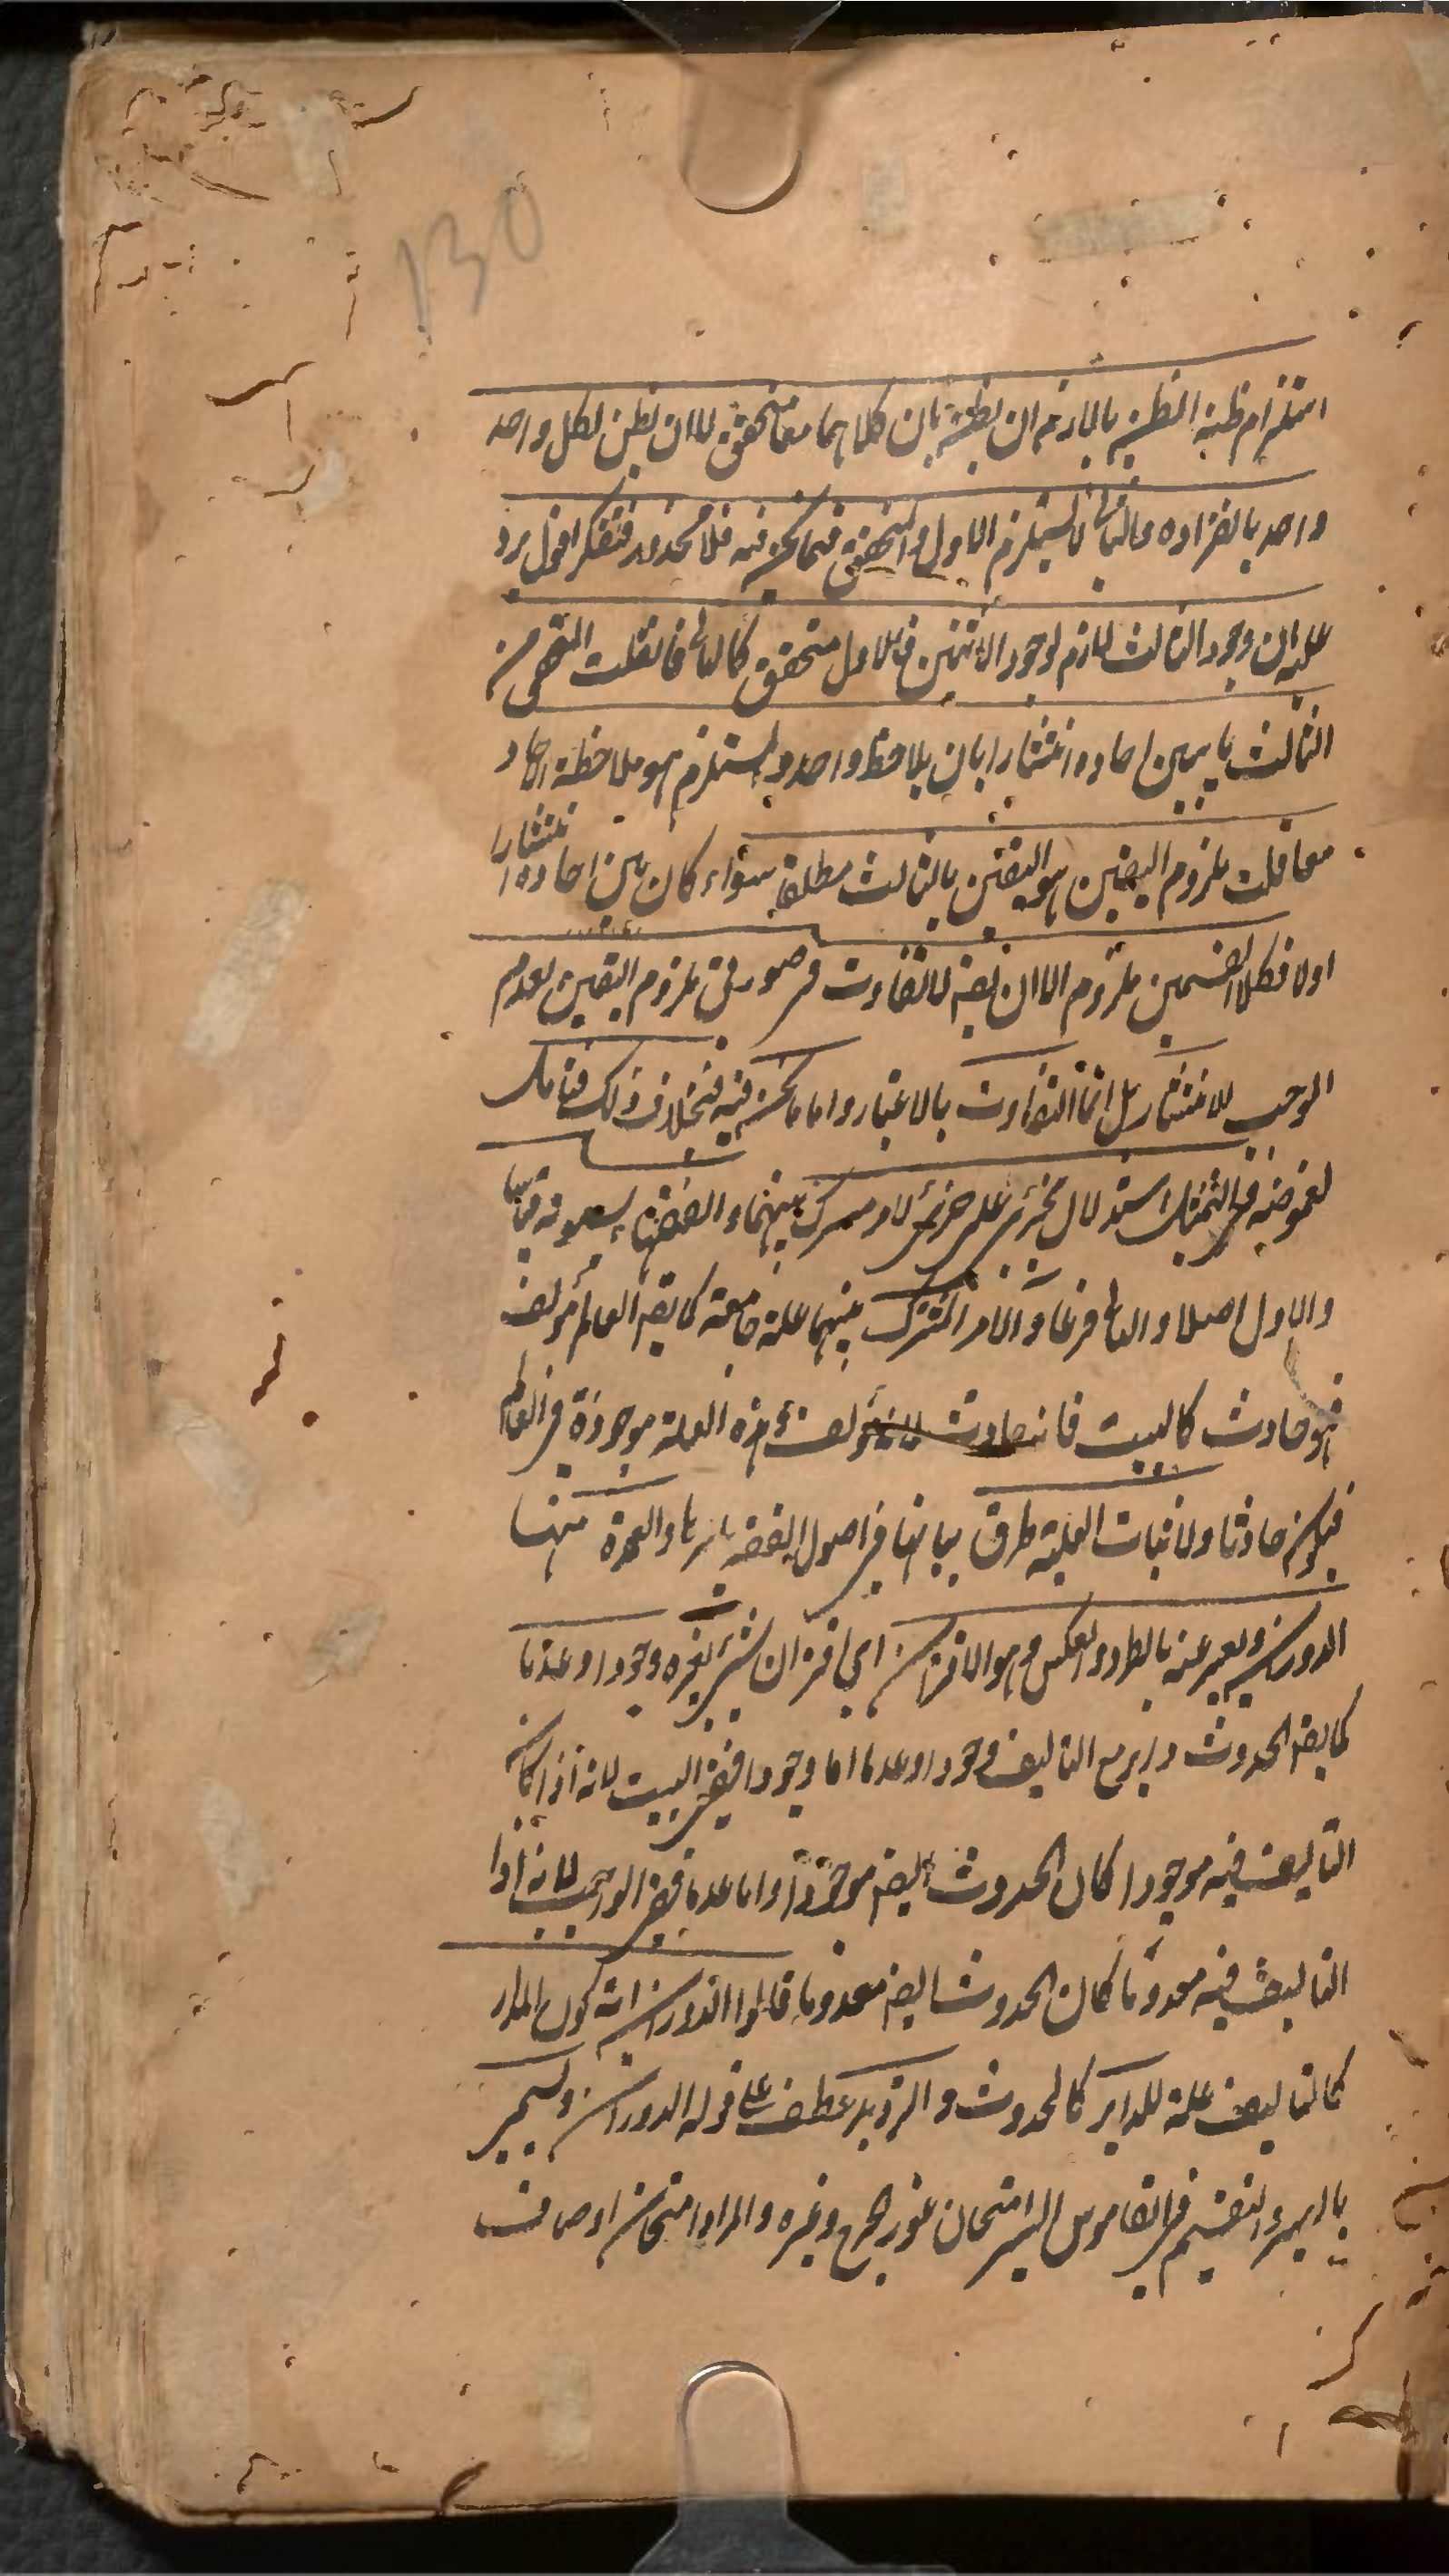 130
استلزام ظنية الظن باللازم ان يظن بان كلاهما معا متحقق لا ان يظن لكل واحد
واحد بانفراده والثانى لا يستلزم الاول والمتحقق فيما نحن فيه فلا محذور فتفكر اقول يرد
عليه ان وجود الثالث لازم لوجود الاثنين فالاول متحقق كالثانى فان قلت التحقق من
الثالث ما بين احاده انتشارا بان يلاحظ واحد والمستلزم هو ملاحظة الاحاد
معا قلت ملزوم اليقين هو اليقين بالثالث مطلقا سواء كان بين احاده انتشارا
اولا فكلا القسمين ملزوم الا ان يقه لا تفاوت فى صورتى ملزوم اليقين لعدم
الموجب للانتشار بل انما التفاوت بالاعتبار واما ما نحن فيه فبخلاف ذلك فتامل
لغموضه التمثيل استدلال بجزئى على جزئى لامر مشترك بينهما والفقهاء يسمونه قياسا
والاول اصلا والثانى فرعا والامر المشترك بينهما علة جامعة كما يقه العالم مؤلف
فهو حادث كالبيت فانه حادث لانه مؤلف وهذه العلة موجودة فى العالم
فيكون حادثا ولاثبات العلية طرق بيانها فى اصول الفقه باسرها والعمدة منها
الدوران ويعبر عنه بالطرد والعكس وهو الاقتران اى اقتران شىء بغيره وجودا وعدما
كما يقه الحدوث داير مع التاليف وجودا وعدما اما وجودا ففى البيت لانه اذا كان
التاليف فيه موجودا كان الحدوث ايضه موجودا واما عدما ففى الواجب لانه اذا
التاليف فيه معدوما كان الحدوث ايضه معدوما قالوا الدوران اية كون المدار
كالتاليف علة للداير كالحدوث والترديد عطف على قوله الدوران ويسمى
بالسبر والتقسيم فى القاموس السبر امتحان غور الجرح وغيره والمراد امتحان اوصاف